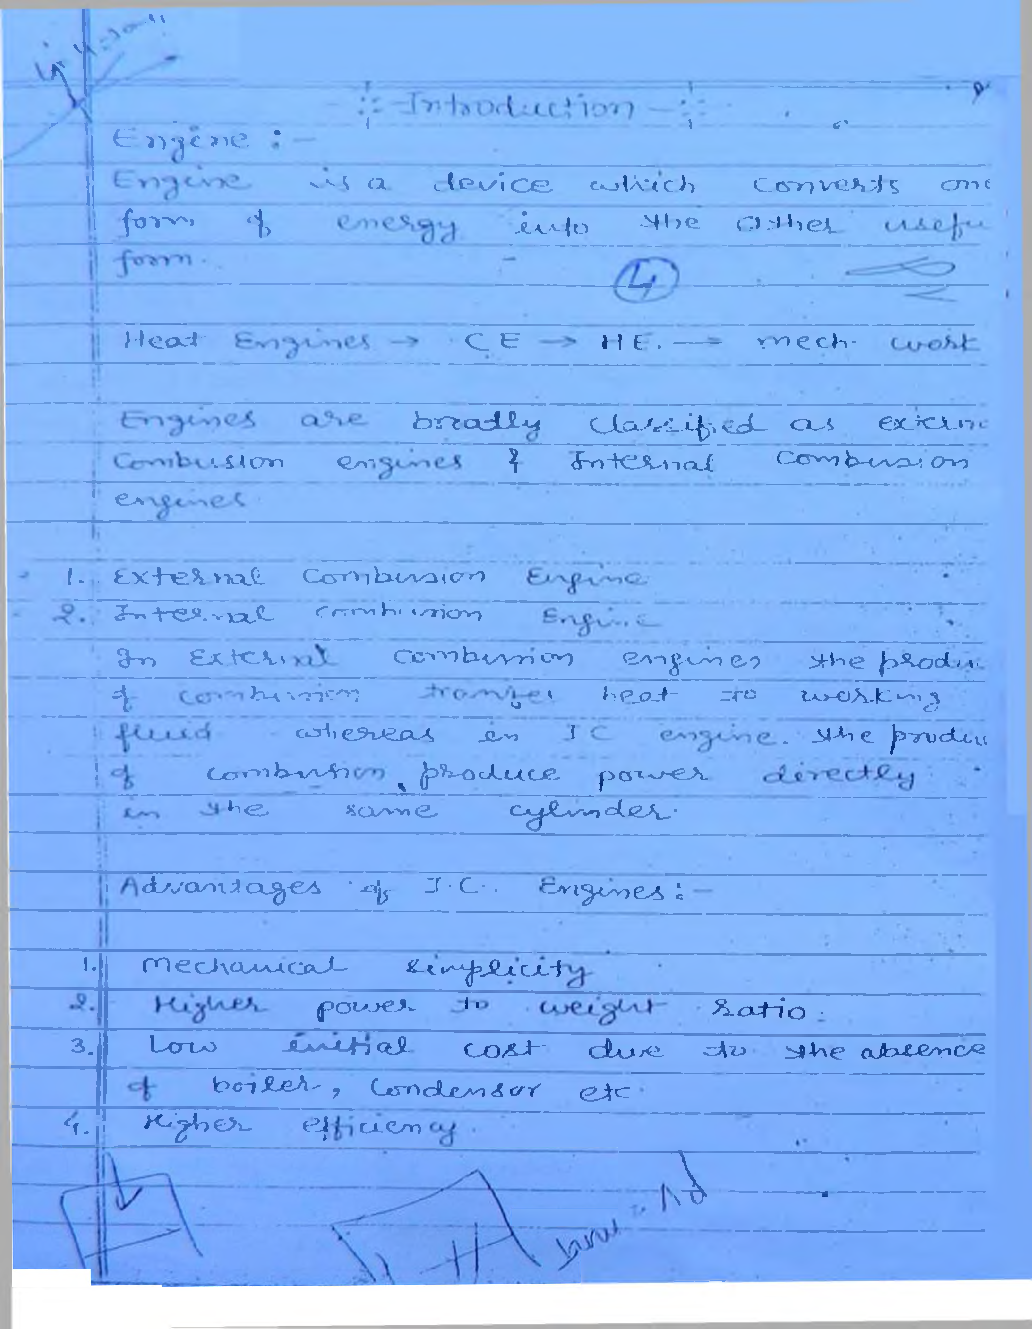 -:- Introduction -:-
Engine :-
Engine is a device which converts one
form of energy into the other usefu
form.
4
Heat Engines → C.E → H.E. → mech. work
Engines are broadly classified as extern
Combusion engines & Internal Combusion
engines
1. External Combusion Engine
2. Internal combusion Engine
In External combusion engines the produc
of combusion transfer heat to working
fluid whereas in I C engine. the produc
of combusion, produce power directly
in the same cylinder.
Advantages of I.C. Engines :-
1. Mechanical simplicity
2. Higher power to weight ratio.
3. Low initial cost due to the absence
of boiler, Condensor etc.
4. Higher efficiency.